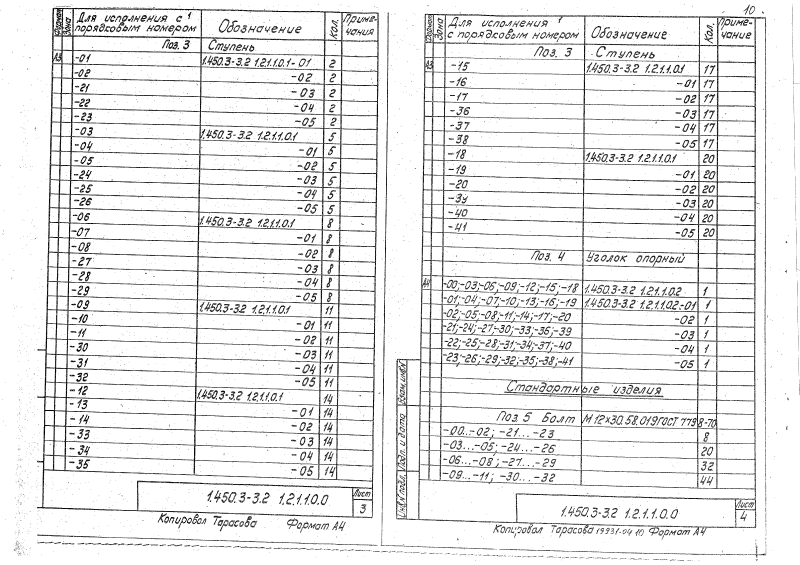 Формат Зона Для исполнения с порядковым номером Обозначение Кол. Примечания
Поз. 3 Ступень
А3 -01 1.450.3-3.2 1.2.1.1.0.1-01 2
-02 -02 2
-21 -03 2
-22 -04 2
-23 -05 2
-03 1.450.3-3.2 1.2.1.1.0.1 5
-04 -01 5
-05 -02 5
-24 -03 5
-25 -04 5
-26 -05 5
-06 1.450.3-3.2 1.2.1.1.0.1 8
-07 -01 8
-08 -02 8
-27 -03 8
-28 -04 8
-29 -05 8
-09 1.450.3-3.2 1.2.1.1.0.1 11
-10 -01 11
-11 -02 11
-30 -03 11
-31 -04 11
-32 -05 11
-12 1.450.3-3.2 1.2.1.1.0.1 14
-13 -01 14
-14 -02 14
-33 -03 14
-34 -04 14
-35 -05 14
1.450.3-3.2 1.2.1.1.0.0 Лист 3
Копировал Тарасова Формат А4
10
Формат Зона Для исполнения с порядковым номером Обозначение Кол. Примечание
Поз. 3 Ступень
А3 -15 1.450.3-3.2 1.2.1.1.0.1 17
-16 -01 17
-17 -02 17
-36 -03 17
-37 -04 17
-38 -05 17
-18 1.450.3-3.2 1.2.1.1.0.1 20
-19 -01 20
-20 -02 20
-39 -03 20
-40 -04 20
-41 -05 20
Поз. 4 Уголок опорный
А4 -00;-03;-06;-09;-12;-15;-18 1.450.3-3.2 1.2.1.1.0.2 1
-01;-04;-07;-10;-13;-16;-19 1.450.3-3.2 1.2.1.1.0.2-01 1
-02;-05;-08;-11;-14;-17;-20 -02 1
-21;-24;-27;-30;-33;-36;-39 -03 1
-22;-25;-28;-31;-34;-37;-40 -04 1
-23;-26;-29;-32;-35;-38;-41 -05 1
Стандартные изделия
Поз 5 Болт М12×30.58.019 ГОСТ 7798-70
-00...-02; -21...-23 8
-03...-05; -24...-26 20
-06...-08; -27...-29 32
-09...-11; -30...-32 44
Инв.№ подл. Подп. и дата Взам. инв.№
1.450.3-3.2 1.2.1.1.0.0 Лист 4
Копировал Тарасова 19931-04 10 Формат А4